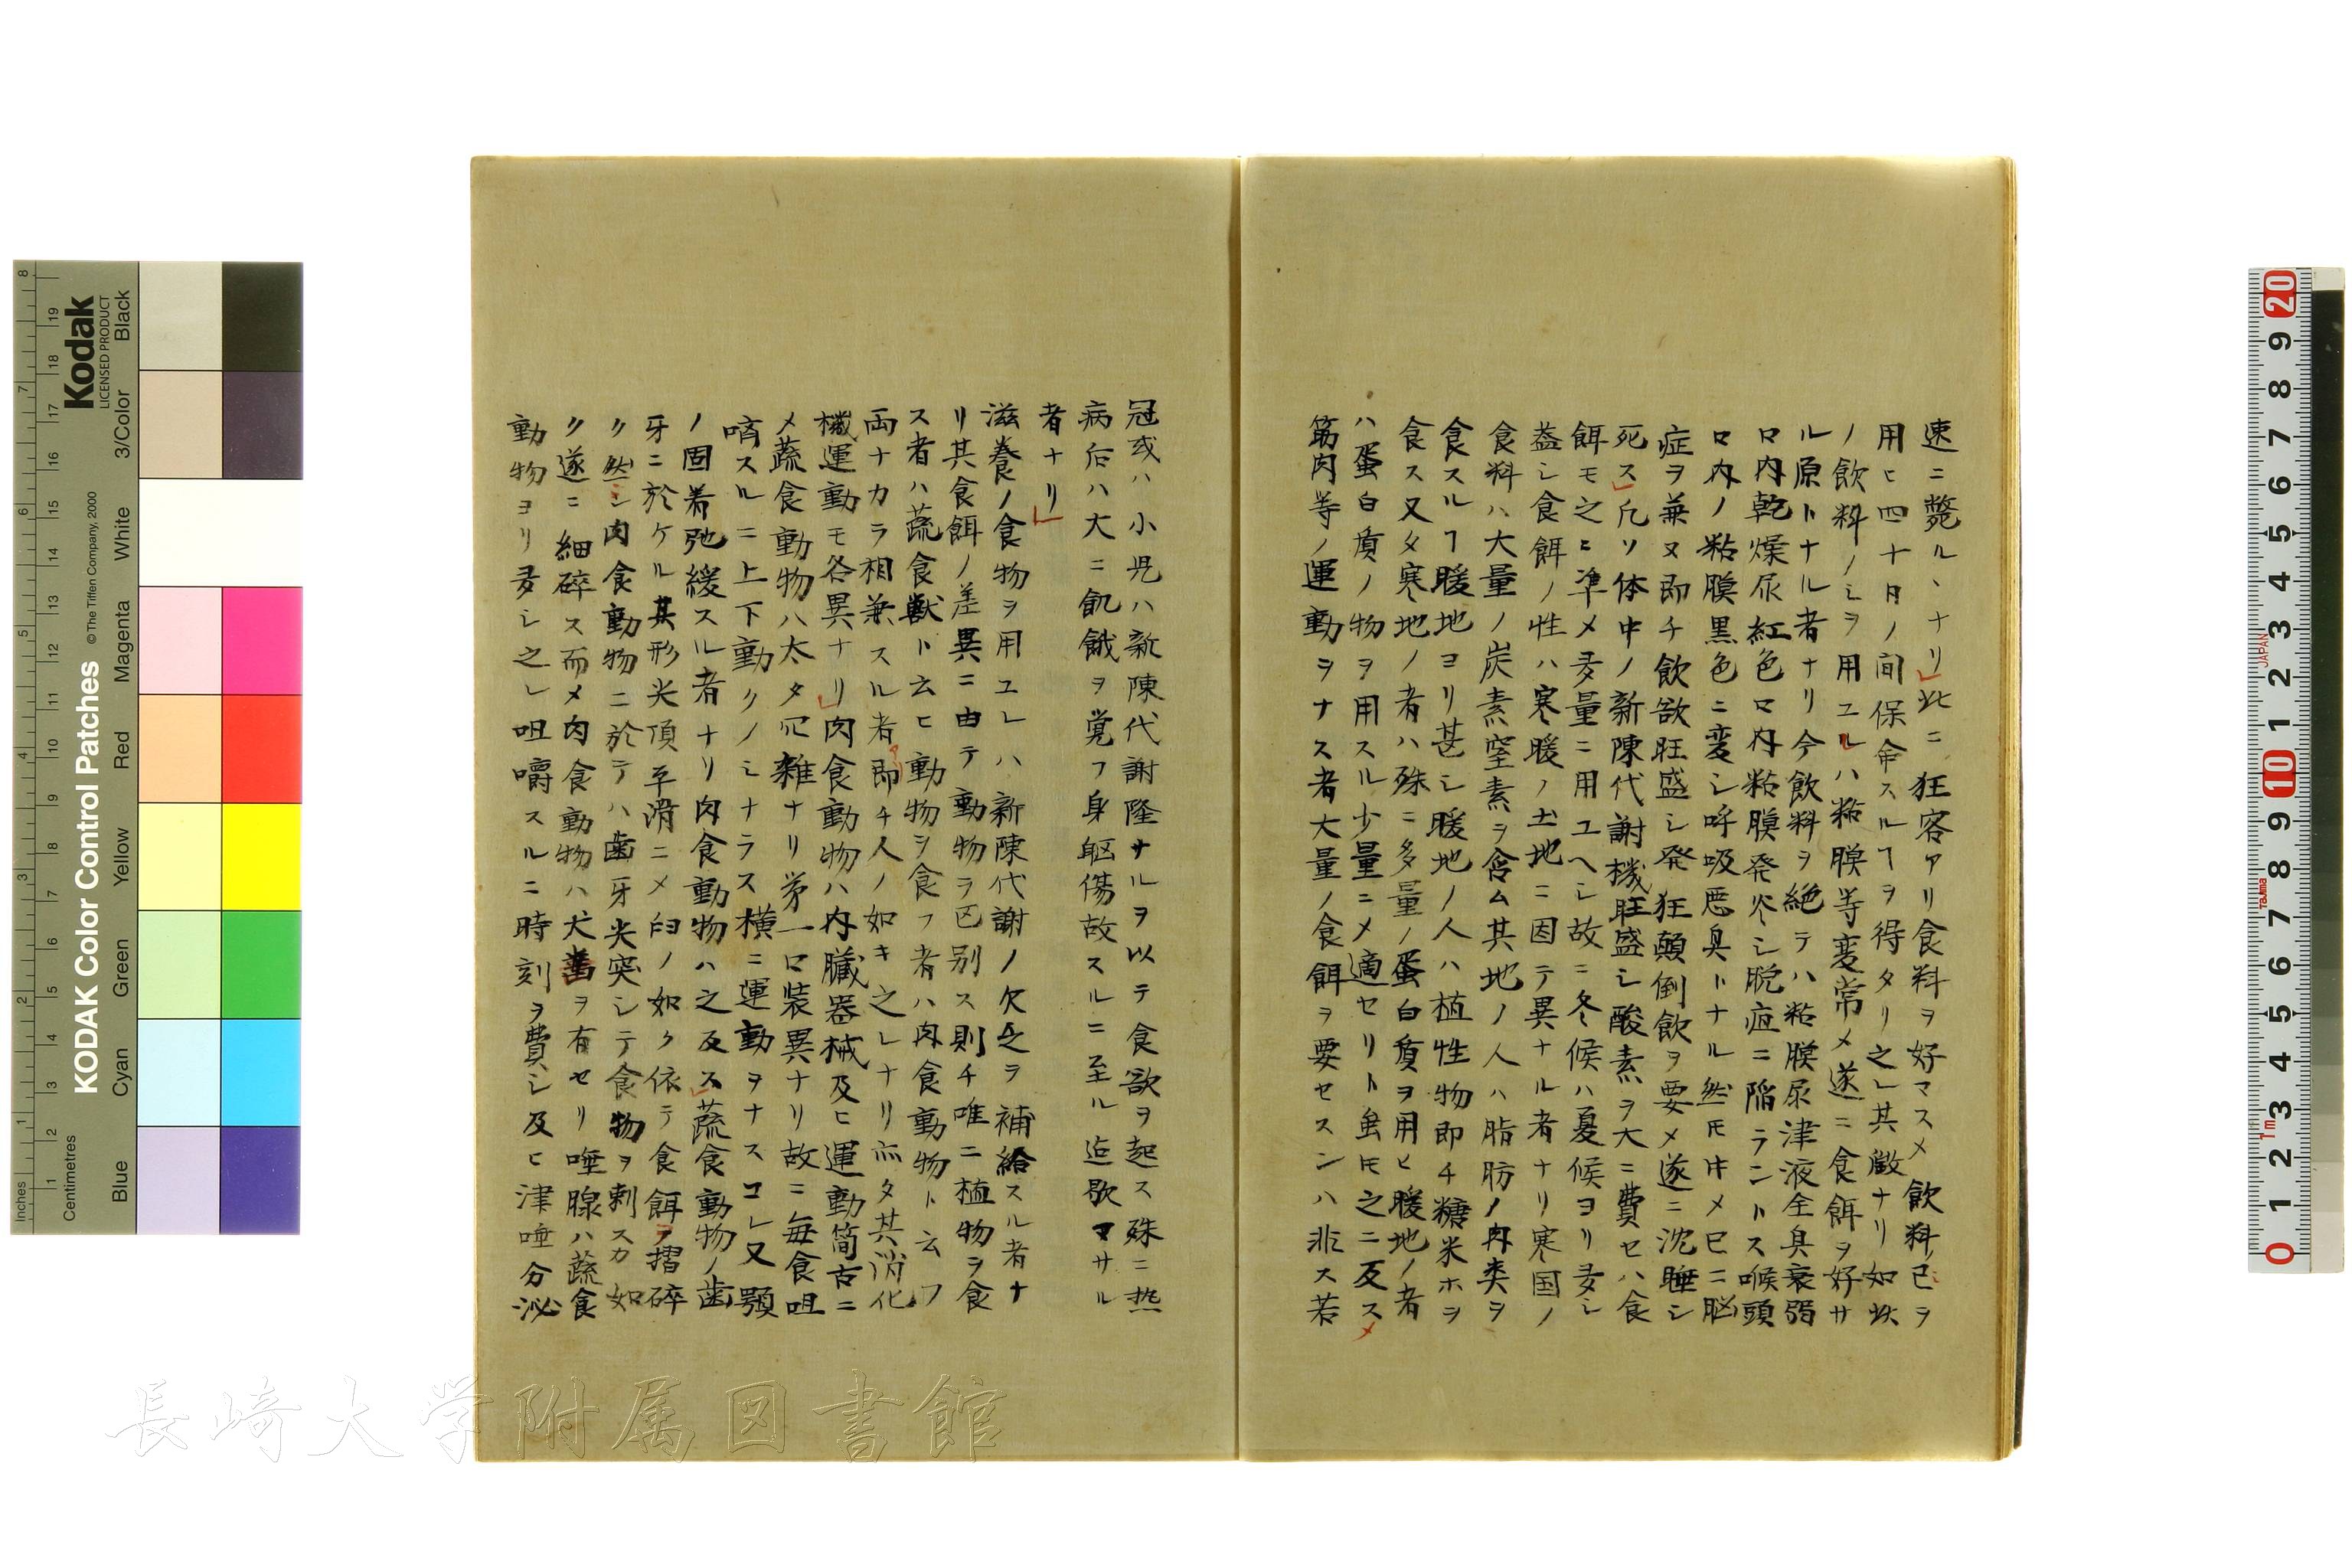 速ニ斃ル丶ナリ此ニ狂客アリ食料ヲ好マスメ飲料ノミヲ
用ヒ四十日ノ間保命スルヿヲ得タリ之レ其徴ナリ如此
ノ飲料ノミヲ用ユレハ粘膜等変常メ遂ニ食餌ヲ好サ
ル原トナル者ナリ今飲料ヲ絶テハ粘膜尿津液全具衰弱
口内乾燥尿紅色口内粘膜発炎シ脱疽ニ陥ラントス喉頭
口内ノ粘膜黒色ニ変シ呼吸悪臭トナル然モ メ已ニ脳
症ヲ兼ヌ即チ飲欲旺盛シ発狂顛倒飲ヲ要メ遂ニ沈睡シ
死ス凡ソ体中ノ新陳代謝機旺盛シ酸素ヲ大ニ費セハ食
餌モ之ニ準メ多量ニ用ユヘシ故ニ冬候ハ夏候ヨリ多シ
蓋シ食餌ノ性ハ寒暖ノ土地ニ因テ異ナル者ナリ寒国ノ
食料ハ大量ノ炭素窒素ヲ含ム其地ノ人ハ脂肪ノ肉类ヲ
食スルヿ暖地ヨリ甚シ暖地ノ人ハ植性物即チ糖米ホヲ
食ス又タ寒地ノ者ハ殊ニ多量ノ蛋白質ヲ用ヒ暖地ノ者
ハ蛋白質ノ物ヲ用スル少量ニメ適セリト虽モ之ニ反スメ
筋肉等ノ運動ヲナス者大量ノ食餌ヲ要セスンハ非ス若
冠或ハ小児ハ新陳代謝隆ナルヲ以テ食欲ヲ起ス殊ニ热
病后ハ大ニ飢餓ヲ覚フ身躯傷故スルニ至ル迄歇マサル
者ナリ
滋養ノ食物ヲ用ユレハ新陳代謝ノ欠乏ヲ補給スル者ナ
リ其食餌ノ差異ニ由テ動物ヲ区别ス則チ唯ニ植物ヲ食
ス者ハ蔬食獣ト云ヒ動物ヲ食フ者ハ肉食動物ト云フ
両ナカラ相兼スル者即チ人ノ如キ之レナリ亦タ其消化
機運動モ各異ナリ肉食動物ハ内臓器械及ヒ運動簡古ニ
メ蔬食動物ハ太タ冗雑ナリ第一口装異ナリ故ニ毎食咀
嚼スルニ上下動クノミナラス横ニ運動ヲナスコレ又顎
ノ固着弛緩スル者ナリ肉食動物ハ之反ス蔬食動物ノ歯
牙ニ於ケル其形尖頂平滑ニメ臼ノ如ク依テ食餌ヲ摺碎
ク然ニ肉食動物ニ於テハ歯牙尖突シテ食物ヲ刺スカ如
ク遂ニ細碎ス而メ肉食動物ハ犬歯ヲ有セリ唾腺ハ蔬食
動物ヨリ多シ之レ咀嚼スルニ時刻ヲ費シ及ヒ津唾分泌
Kodak
LICENSED PRODUCT
KODAK Color Control Patches
© The Tiffen Company, 2000
Inches
Centimetres
Blue Cyan Green Yellow Red Magenta White 3/Color Black
長崎大学附属図書館
JAPAN
Tajima